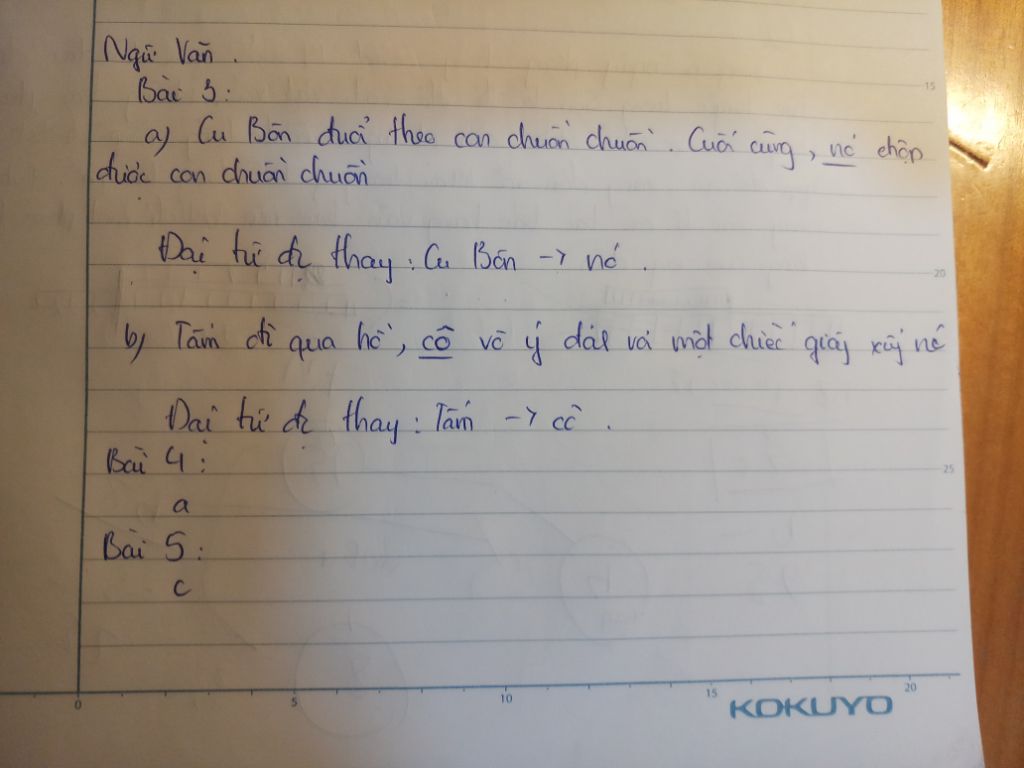 Ngữ Văn.
Bài 3:
15
a) Cu Bôn đuổi theo con chuồn chuồn. Cuối cùng, nó chộp
được con chuồn chuồn
Đại từ đc thay: Cu Bôn -> nó.
20
b) Tấm đi qua hồ, cô vô ý đánh một chiếc giày xuống nước
Đại từ đc thay: Tấm -> cô.
Bài 4:
25
a
Bài 5:
c
0 5 10 15 20
KOKUYO